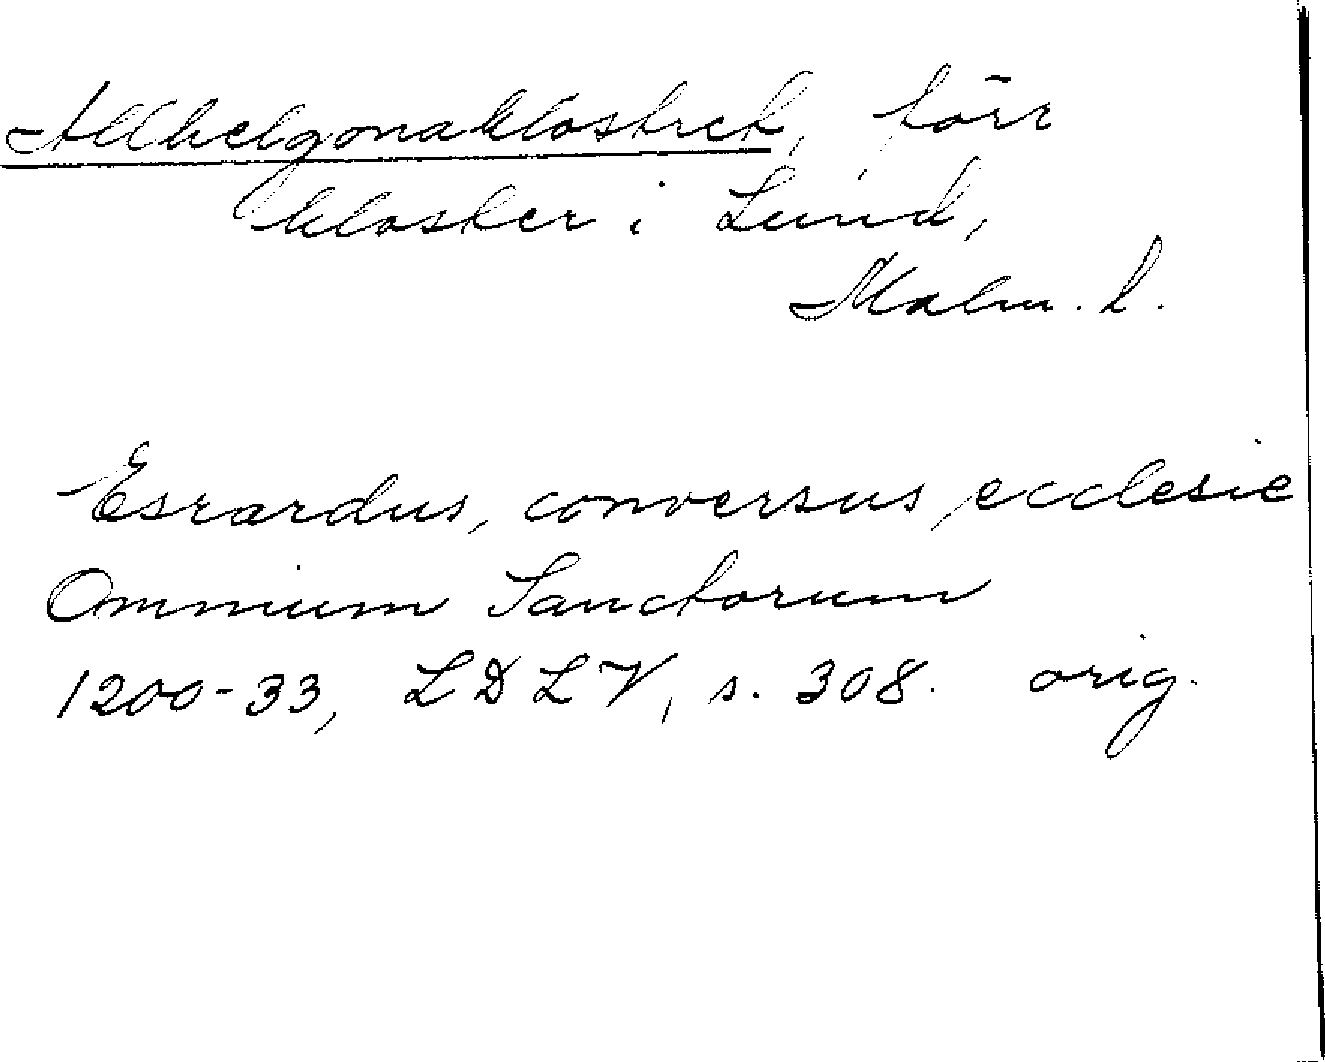 Allhelgonaklostret, förr
kloster i Lund,
Malm. l.
Esrardus, conversus ecclesie
Omnium Sanctorum
1200-33, LDLV, s. 308. orig.